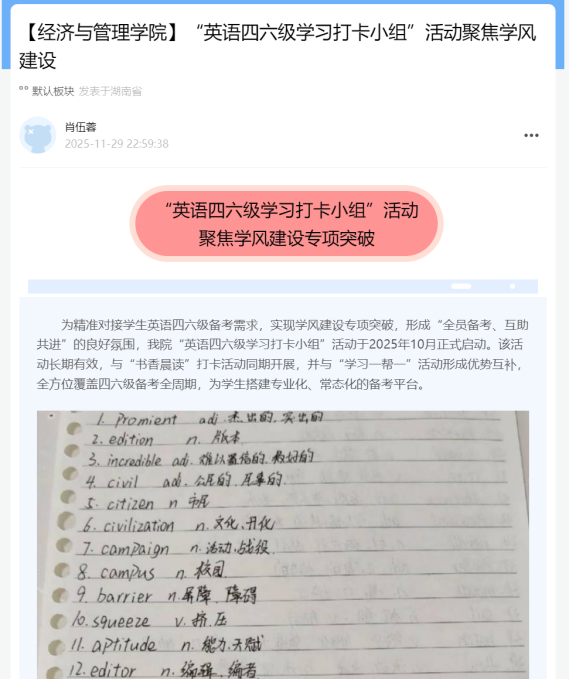 【经济与管理学院】“英语四六级学习打卡小组”活动聚焦学风
建设
默认板块 发表于湖南省
肖伍蓉
2025-11-29 22:59:38
“英语四六级学习打卡小组”活动
聚焦学风建设专项突破
为精准对接学生英语四六级备考需求，实现学风建设专项突破，形成“全员备考、互助
共进”的良好氛围，我院“英语四六级学习打卡小组”活动于2025年10月正式启动。该活
动长期有效，与“书香晨读”打卡活动同期开展，并与“学习一帮一”活动形成优势互补，
全方位覆盖四六级备考全周期，为学生搭建专业化、常态化的备考平台。
1. Promient adj. 杰出的, 突出的
2. edition n. 版本
3. incredible adj. 难以置信的, 极好的
4. civil adj. 公民的, 民事的
5. citizen n 市民
6. civilization n. 文化, 开化
7. campaign n. 活动, 战役
8. campus n. 校园
9. barrier n. 屏障, 障碍
10. squeeze v. 挤, 压
11. aptitude n. 能力, 天赋
12. editor n. 编辑, 编者